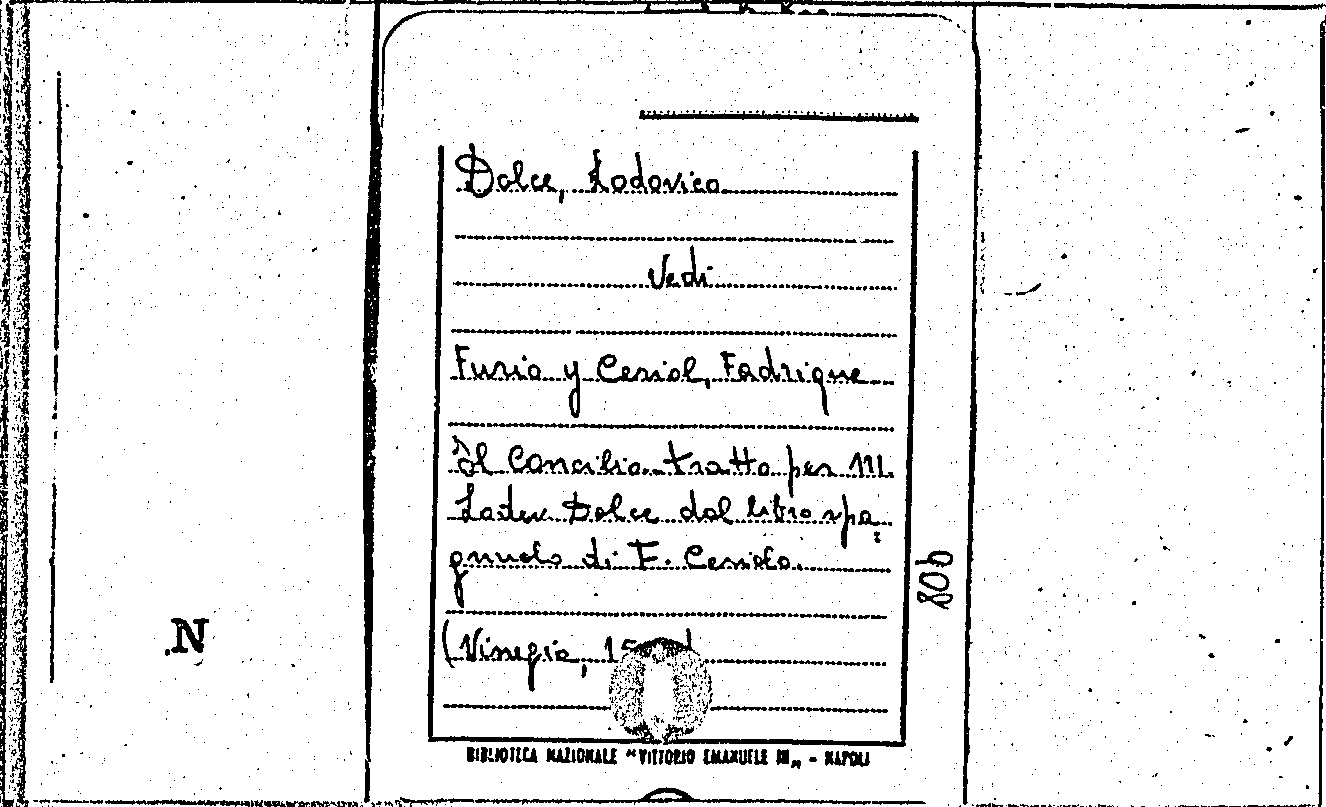 Dolce, Lodovico
Vedi
Furio y Ceriol, Fadrique
Il Concilio tratto per M.
Dolce dal libro spa
gnuolo di F. Ceriolo.
(Vinegia,
908
N
BIBLIOTECA NAZIONALE "VITTORIO EMANUELE III„ - NAPOLI